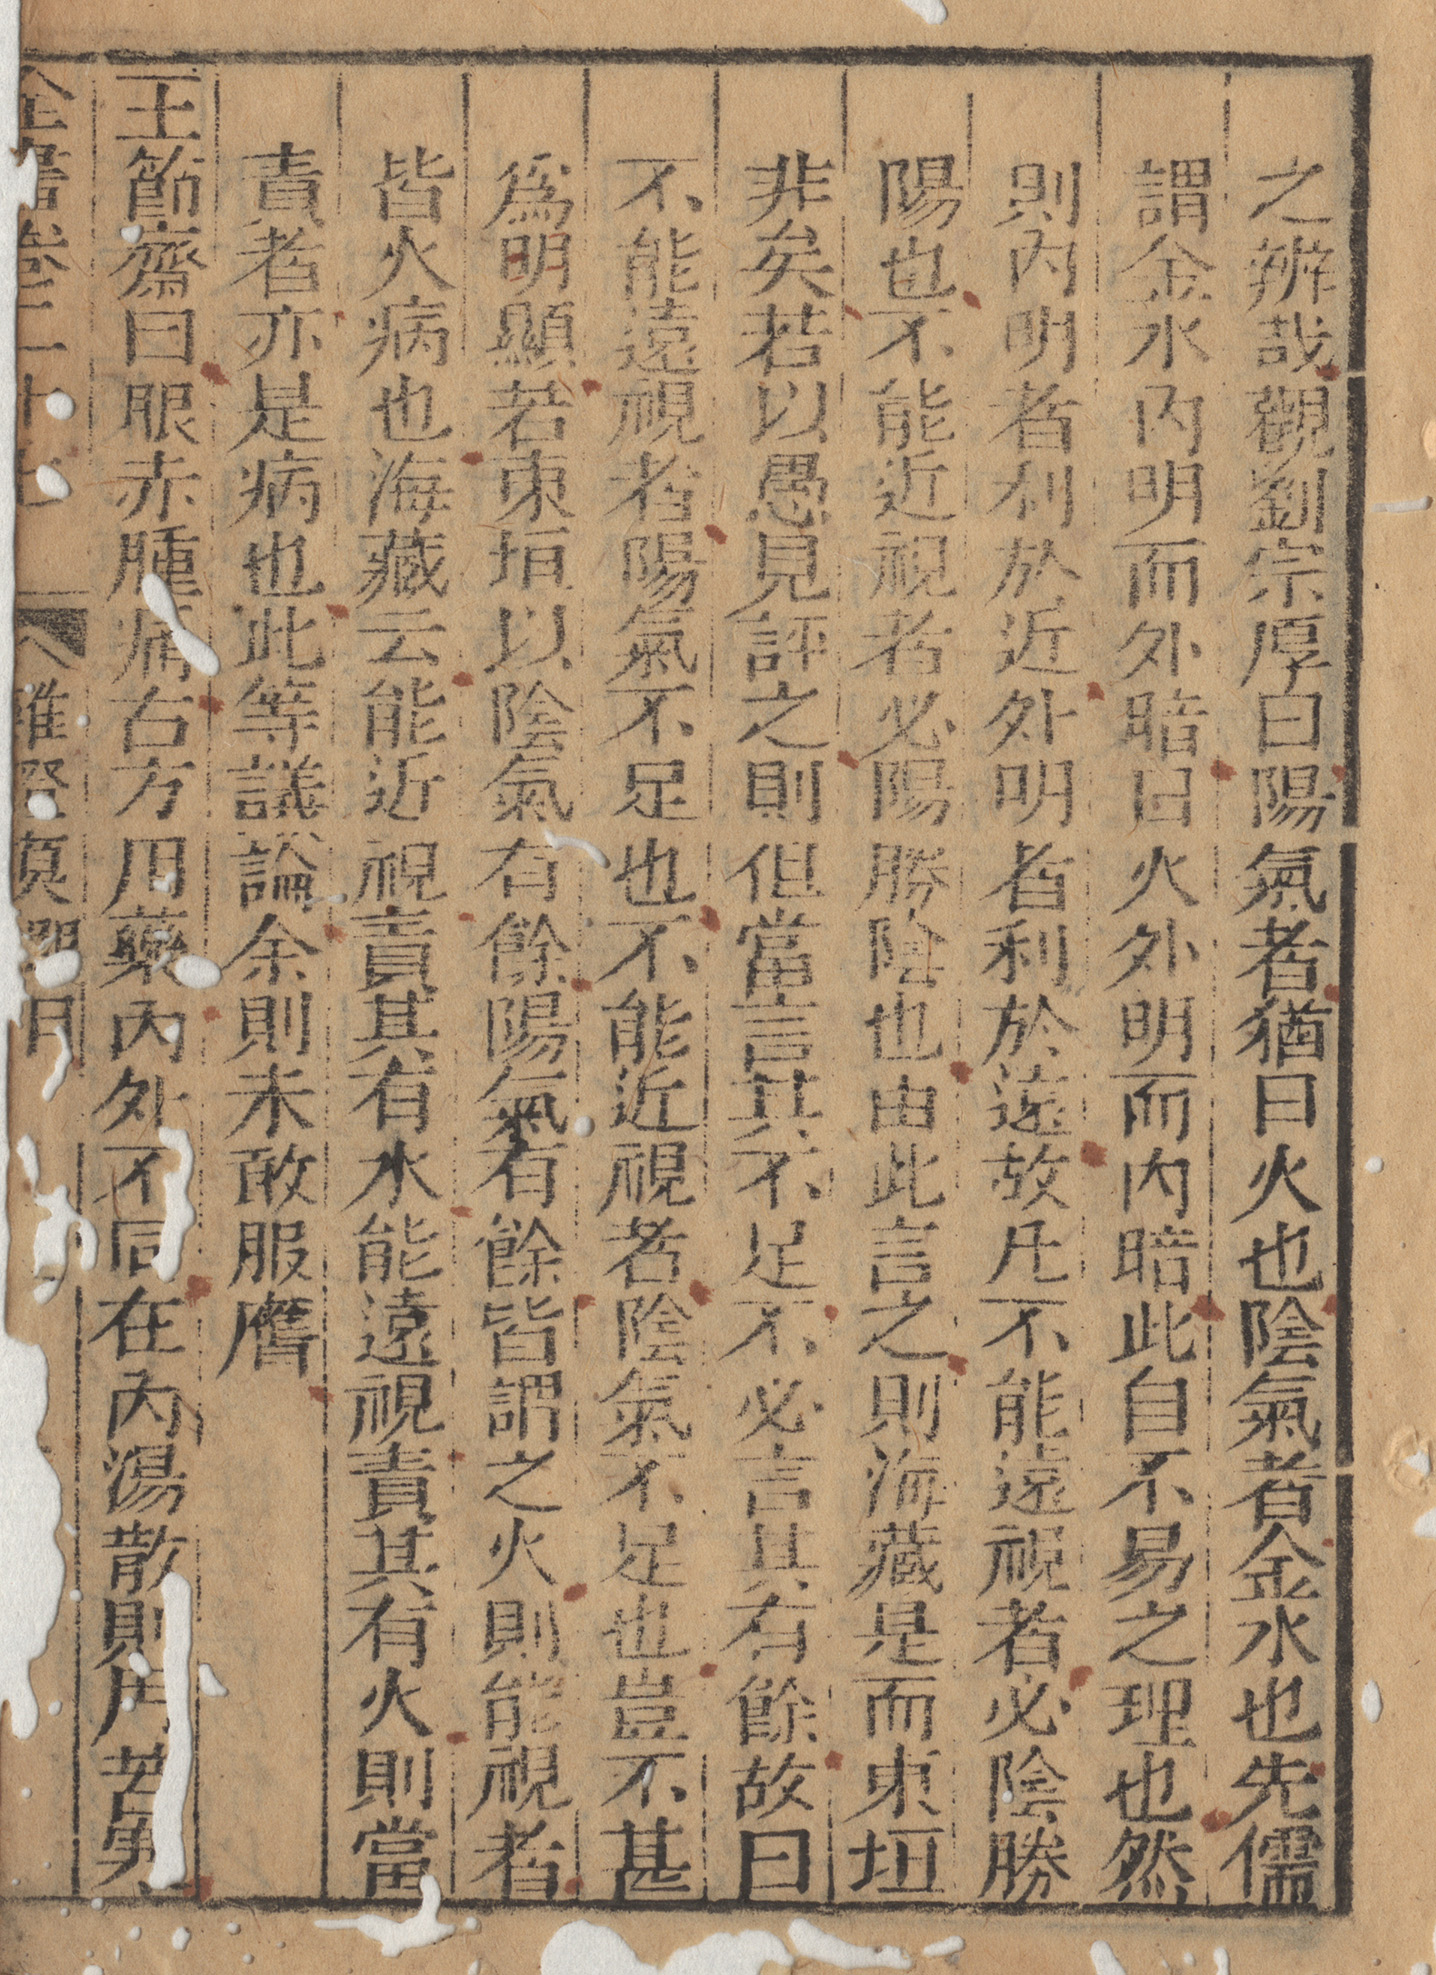 之辨哉觀劉宗厚曰陽氣者猶日火也陰氣者金水也先儒
謂金水內明而外暗日火外明而內暗此自不易之理也然
則內明者利於近外明者利於遠故凡不能遠視者必陰勝
陽也不能近視者必陽勝陰也由此言之則海藏是而東垣
非矣若以愚見評之則但當言其不足不必言其有餘故曰
不能遠視者陽氣不足也不能近視者陰氣不足也豈不甚
為明顯若東垣以陰氣有餘陽氣有餘皆謂之火則能視者
皆火病也海藏云能近視責其有水能遠視責其有火則當
責者亦是病也此等議論余則未敢服膺
王節齋曰眼赤腫痛古方用藥內外不同在內湯散則用苦寒
全書卷二十七 雜證謨 眼目